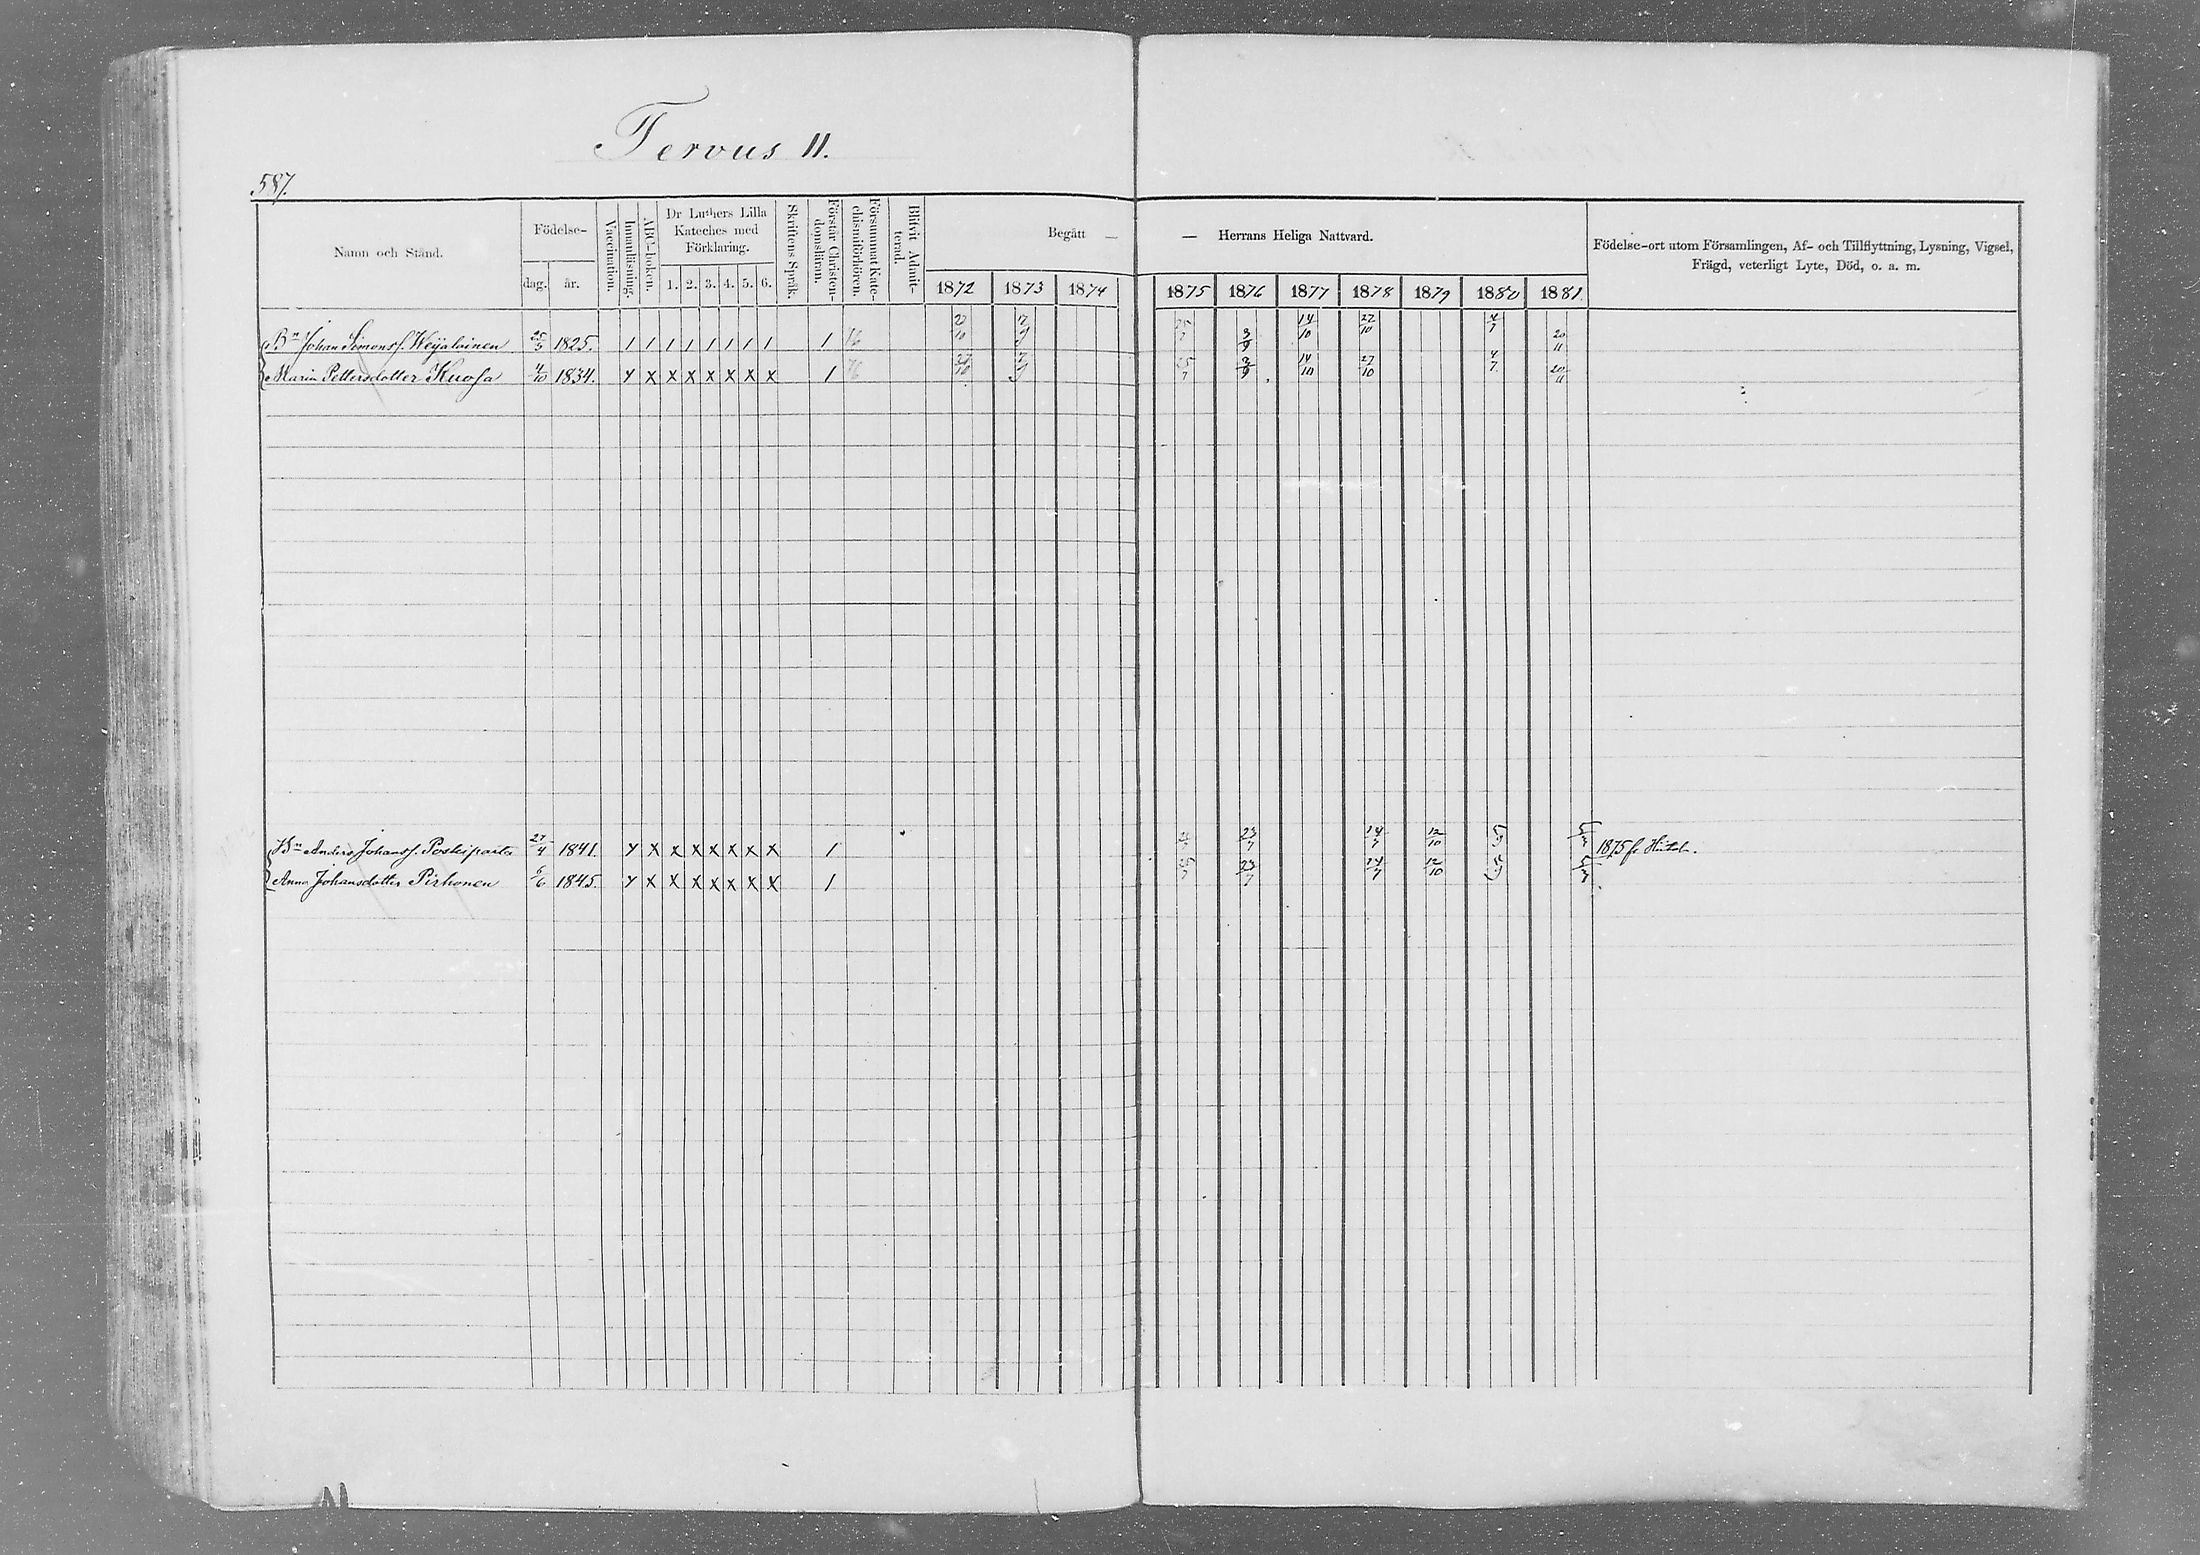 Tervus 11.
587.
Namn och Stånd.
Födelse-
dag. år.
Vaccination.
Innanläsning.
ABC-boken.
Dr Luthers Lilla Kateches med Förklaring.
1. 2. 3. 4. 5. 6.
Skriftens Språk.
Förstår Christendomsläran.
Försummat Katechismiförhören.
Blifvit Admitterad.
Begått — — Herrans Heliga Nattvard.
1872 1873 1874 1875 1876 1877 1878 1879 1880 1881
Födelse-ort utom Församlingen, Af- och Tillflyttning, Lysning, Vigsel,
Frägd, veterligt Lyte, Död, o. a. m.
Bn Johan Simonss. Weijalainen 25/5 1825. / / / / / / / / 1 7/9 3/9 14/10 27/10 4/7 20/11
Maria Pettersdotter Kuosa 4/10 1834. Y X X X X X X X 1 7/9 25/7 3/9 14/10 27/10 4/7 20/11
Bn Anders Johanss. Poskiparta 27/4 1841. Y X X X X X X X 1 23/7 14/7 12/10 5/9 1875 fr
Anna Johansdotter Pirhonen 5/6 1845. Y X X X X X X X 1 25/7 23/7 14/7 12/10 5/9